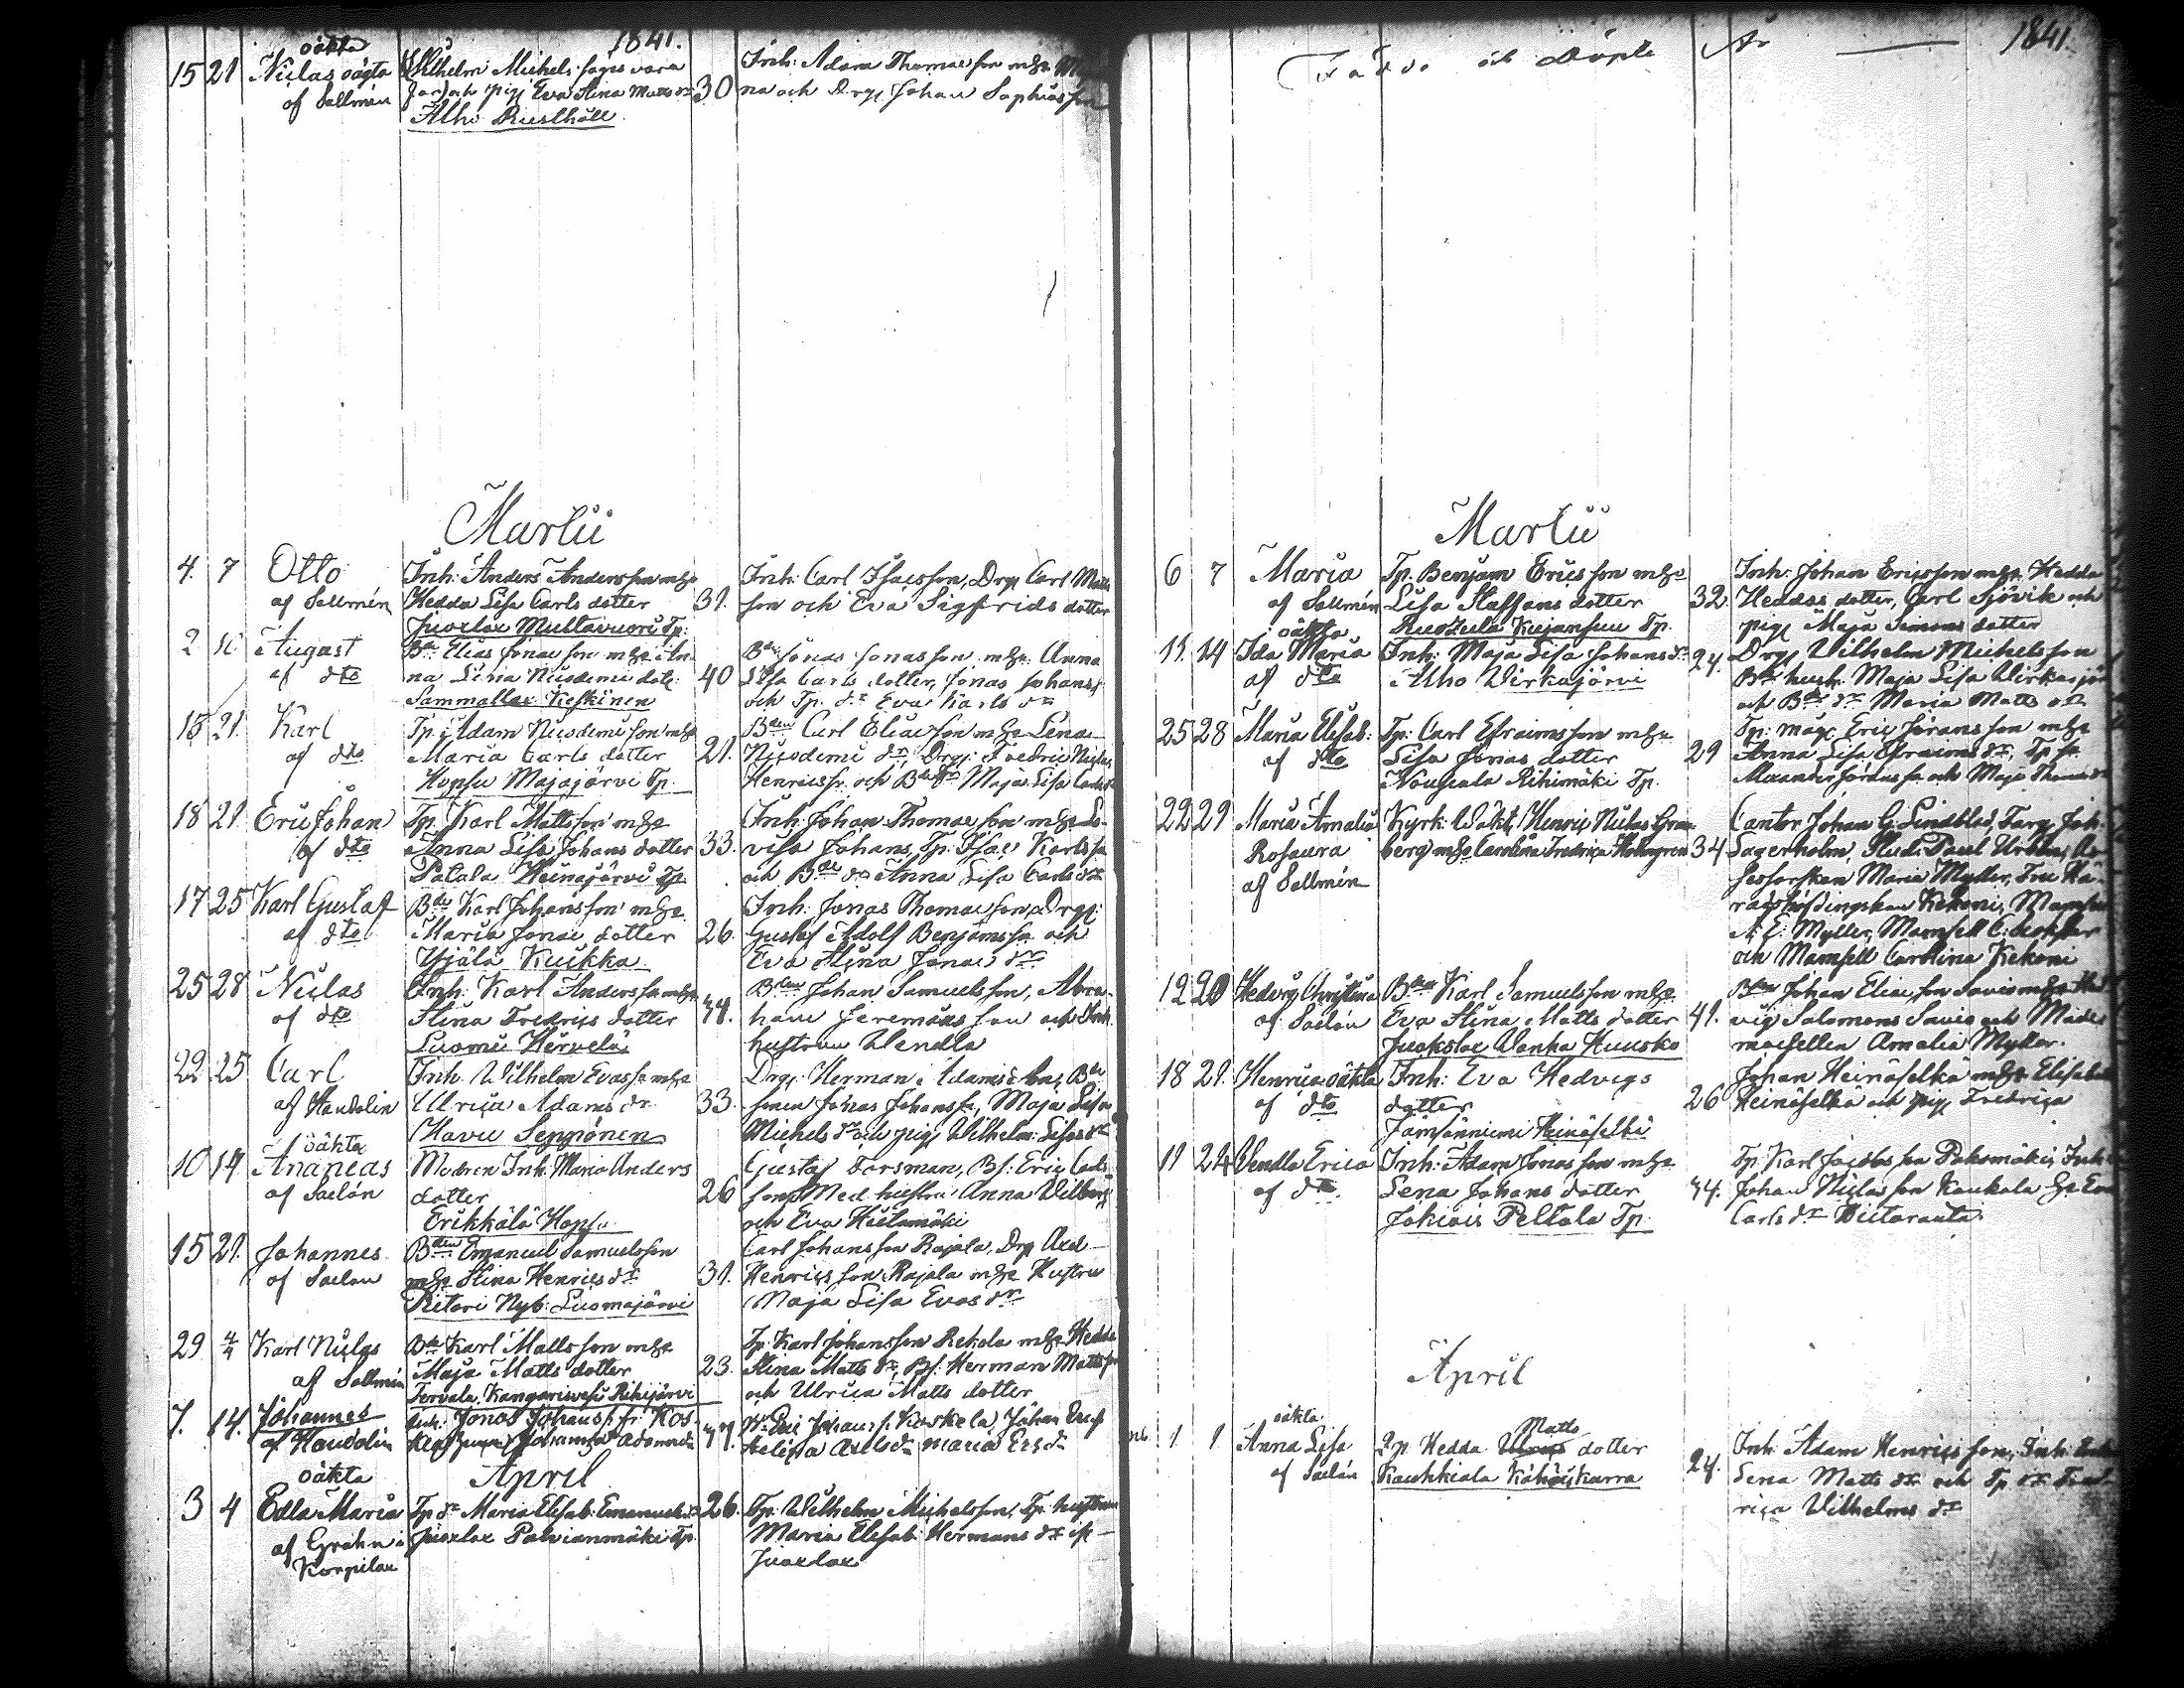 1841.
oäkta
15 21 Niclas oägta
af Sallmén
Wilhelm Michels. säges vara
far och pig. Eva Stina Matts dr
Alho Rusthåll
30
Inh: Adam Thomasson m h
na och Drg. Johan Sophiasson
Martii
4. 7 Otto
af Sallmén
Inh: Anders Andersson m hu
Hedda Lisa Carls dotter
Juoxlax Multavuori Tp.
31.
Inh: Carl Isacsson, Drg Carl Matts
son och Eva Sigfrids dotter
2 10. August
af dto
Bde Elias Jonasson m hu An
na Lena Nicodemi dott.
Sammallax Keskinen
40
Bde Jonas Jonasson m hu Anna
Lisa Carls dotter, Jonas Johanss.
och Tp. dr Eva Karls dr
15 21. Karl
af dto
Tp. Adam Nicodemi son m hu
Maria Carls dotter
Hopsu Majajärvi Tp.
21.
Bden Carl Eliasson m hu Lena
Nicodemi dr, Drg: Fredric Niclas
Henricss. och Bde dr Maja Lisa Carls
18 21. Eric Johan
af dto
Tp. Karl Mattsson m hu
Anna Lisa Johans dotter
Patala Heinäjärvi Tp
33.
Inh: Johan Thomasson m hu Lo-
visa Johans, Tp. Isac Karls so
och Bde dr Anna Lisa Carls dr
17 25 Karl Gustaf
af dto
Bde Karl Johansson m hu
Maria Jonae dotter
Hjälä Kuikka
26.
Inh: Jonas Thomasson, Drg:
Gustaf Adolf Benjamss. och
Eva Stina Jonae dr
25 28 Niclas
af dto
Inh: Karl Anderss. m hu
Stina Fredrics dotter
Luomi Hervelä
34.
Bden Johan Samuelsson, Abra-
ham Jeremiasson och Inh.
hustrun Wendla
22 25 Carl
af Handolin
Inh. Wilhelm Evass. m hu
Ulrica Adams dr
Havu Seppänen
33.
Drg: Herman Adamsson, Bde
sonen Jonas Johanss., Maja Lisa
Michels dr och pig. Wilhelm: Lisas dr
oäkta
10 14 Ananias
af Saelán
Modren Inh. Maria Anders
dotter
Erikkälä Hopsu
26
Gustaf Forsman, Bs. Eric Carls
son Med hustru Anna Wilborg
och Eva Hietamäki
15 21. Johannes
af Saelan
Bden Emanuel Samuelsson
m hu Stina Henrics dr
Ritari Nyb: Luomajärvi
31.
Carl Johansson Rajala, Drg Axel
Henricsson Rajala m hu Hustru
Maja Lisa Evas dr
29 4/4 Karl Niclas
af Sallmén
Bde Karl Mattsson m hu
Maja Matts dotter
Torvala, Kangarisvesi Rihijärvi
23.
Tp. Karl Johansson Rekola m hu Hedda
Stina Matts dr, Bs. Herman Matts so
och Ulrica Matts dotter
7. 14. Johannes
af Handolin
Inh. Jonas Johanss. fr. Kos-
Johanna Adams dr
37.
Johanss. Koskela, Johan Erics
Helena Axels dr Maria Ers dr
April
oäkta
3 4 Edla Maria
af Grahn i
Korpilax
Tp dr Maria Elisab. Emanuels dr
Juoxlax Palvianmäki Tp.
26.
Tp. Wilhelm Michelsson, Tp. hustrun
Maria Elisab. Hermans dr ifr
Juoxlax
Födde och Döpte År 1841.
Martii
6 7 Maria
af Sallmén
Tp. Benjam Ericsson m hu
Lisa Staffans dotter
Ruozula Kujansuu Tp.
32.
Inh: Johan Ericsson m hu Hedda
Heddas dotter, Carl Sjövik och
pig. Maja Simons dotter
oäkta
11. 14 Ida Maria
af dto
Inh: Maja Lisa Johans dr
Alho Wirkajärvi
24.
Drg. Wilhelm Michelsson
Bde hustr. Maja Lisa Wirkajär
och Bde dr Maria Matts dr
25 28 Maria Elisab:
af dto
Tp: Carl Efraimsson m hu
Lisa Jonas dotter
Nougiala Rihimäki Tp.
29
Tp: måg: Eric Göransson m hu
Anna Lisa Efraims dr, Tp so
Alexander Jordanss och Maja Thomae dr
22 29 Maria Amalia
Rosaura
af Sallmén
Kyrk: Wäkt. Henric Niclas Gran
berg m hu Carolina Fredrica Holmgren
34
Cantor Johan G: Lindblad, Farg. Joh.
Lagerholm, Stud. Paul Urban, As-
sessorskan Maria Myller, Fru Hä-
radshöfdingskan Kekoni, Mamsell
A. E. Myller, Mamsell C.
och Mamsell Carolina Kekoni
12 20 Hedvig Christina
af Saelán
Bden Karl Samuelsson m hu
Eva Stina Matts dotter
Juokslax Wanha Huusko
41.
Bden Johan Eliasson Savio m hu Hed
vig Salomons Savio och Made-
moisellen Amalia Myller.
18 21. Henrica oäkta
af dto
Inh: Eva Hedvigs
dotter
Jämsänniemi Heinäselkä
26
Johan Heinäselkä m hu Elisabet
Heinäselkä och pig. Fredrica
11 24 Wendla Erica
af dto
Inh: Adam Jonasson m hu
Lena Johans dotter
Jokiois Peltola Tp.
34.
Tp. Karl Jacobsson Pahomäki, Inh
Johan Niclasson Kaukola hu Eva
Carls dr Hietaranta
April
oäkta
1. 1 Anna Lisa
af Saelán
Matts
Tp. Hedda dotter
Kauhkiala Kähöiskarra
24.
Inh: Adam Henricsson, Inh.
Lena Matts dr och Tp dr Fred
rica Wilhelms dr